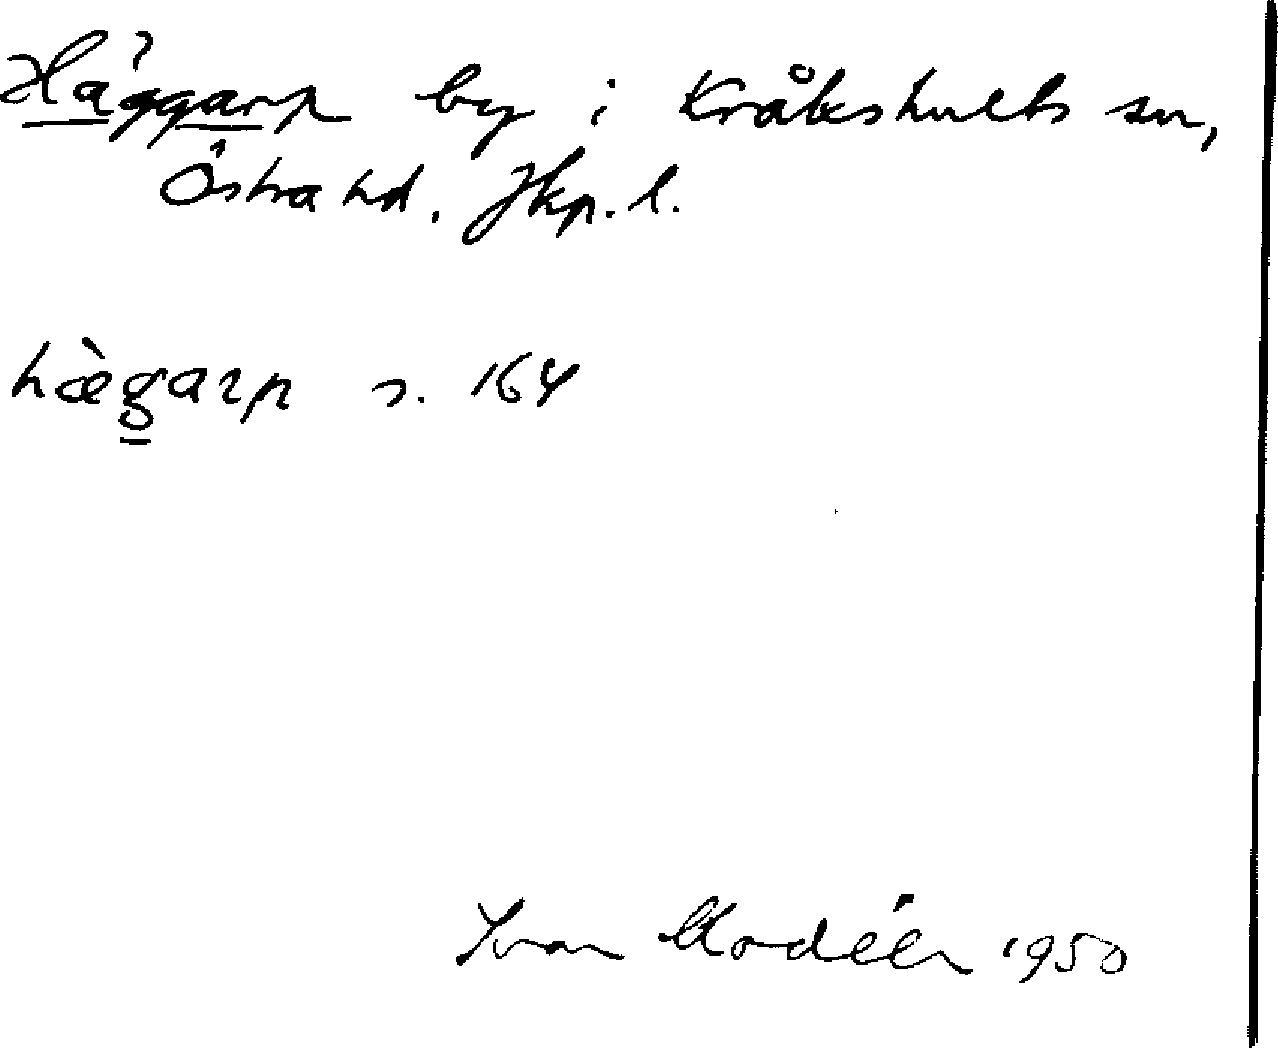 Häggarp by i Kråkshults sn,
Östra hd. Jkp.l.
hæ̀garp s. 164
Ivar Modéer 1950